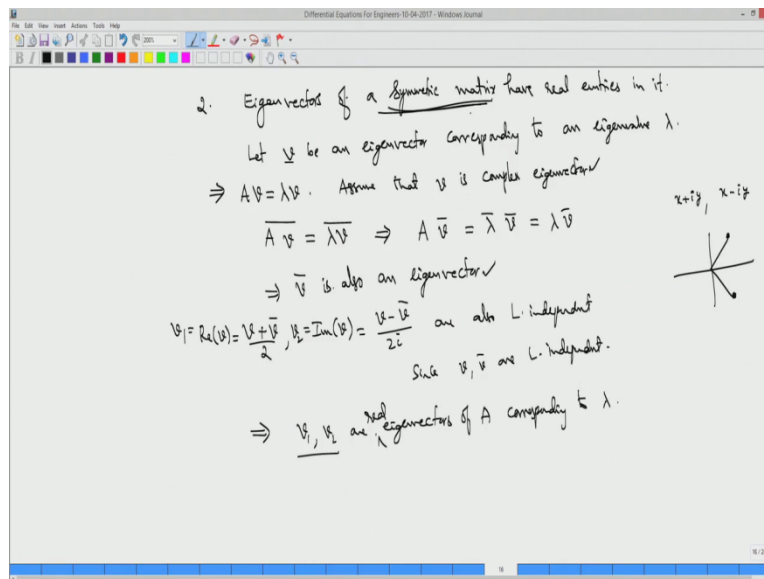 Differential Equations For Engineers-10-04-2017 - Windows Journal
File Edit View Insert Actions Tools Help
200%
B I
2. Eigenvectors of a Symmetric matrix have real entries in it.
Let v be an eigenvector corresponding to an eigenvalue λ.
⇒ Av = λv. Assume that v is complex eigenvector✓
x+iy, x-iy
\overline{A v} = \overline{λv} ⇒ A v̄ = λ̄ v̄ = λ v̄
⇒ v̄ is also an eigenvector✓
v₁ = Re(v) = (v + v̄)/2, v₂ = Im(v) = (v - v̄)/2i are also L. independent
Since v, v̄ are L. independent.
⇒ v₁, v₂ are real eigenvectors of A corresponding to λ.
16